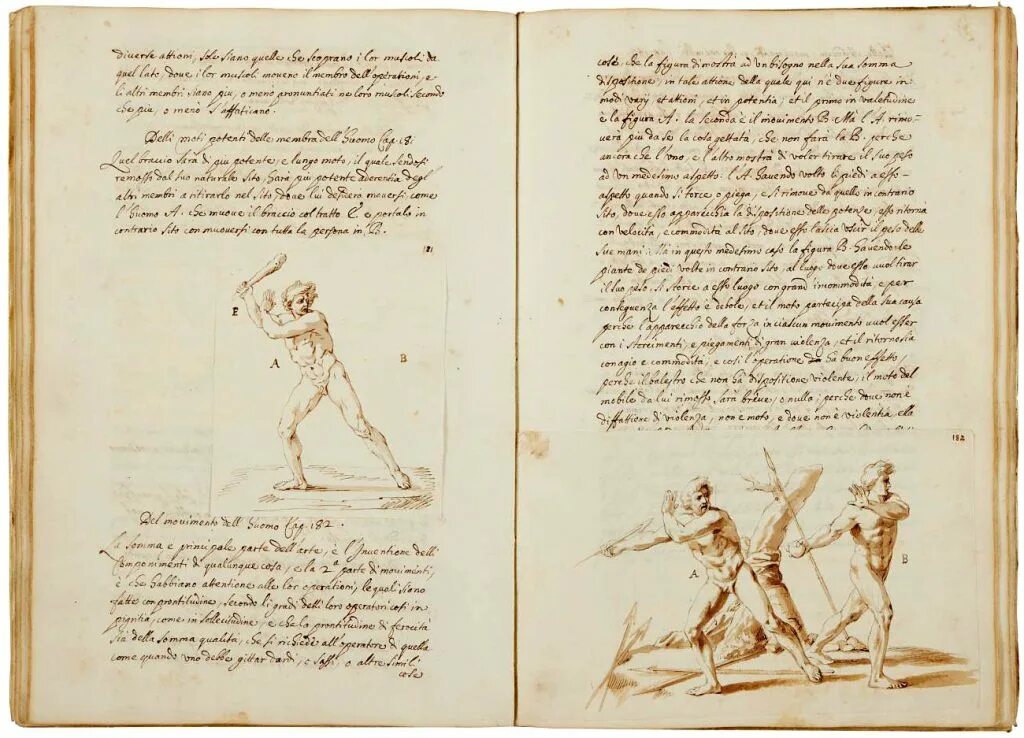 diverse attioni, sole siano quelle che scoprano i lor muscoli da
quel lato, dove i lor muscoli moveno il membro dell'operationi, e
li altri membri siano piu, o meno pronuntiati ne loro muscoli secondo
che piu, o meno s'affaticano.
Delli moti potenti delle membra dell'Huomo Cap. 181.
Quel braccio sarà di piu potente, e lungo moto, il quale sendosi
remosso dal suo naturale sito, harà piu potente aderentia degl'
altri membri a ritirarlo nel sito, dove lui desidera muoversi: come
l'Huomo A. che muove il braccio col tratto E. e portalo in
contrario sito con muoversi con tutta la persona in B.
181
E
A
B
Del movimento dell'Huomo Cap. 182.
La somma e principale parte dell'arte, è l'Inventione delli
Componimenti di qualunque cosa, e la 2ª parte di movimenti,
è che habbiano attentione alle lor operationi, le quali siano
fatte con prontitudine, secondo li gradi delli loro operatori cosi in
pigritia, come in sollecitudine, e che la prontitudine di ferocità
sia della somma qualità, che si richiede all'operatore di quella.
come quando uno debbe gittar dardi, o sassi, o altre simili
cose
cose, che la figura dimostra ad un bisogno nella sua somma
dispositione, in tale attione della quale qui n'è due figure in
modi varij, et attioni, et in potentia, et il primo in valetudine
è la figura A. la seconda è il movimento B. Ma l'A. rimo-
verà piu da se la cosa gettata, che non farà la B. perche
ancora che l'uno, e l'altro mostra di voler tirare il suo peso
ad un medesimo aspetto: l'A. havendo volto li piedi a esso
aspetto quando si torce o piega, e si rimove da quello in contrario
sito, dove esso apparecchia la dispositione delle potenze, esso ritorna
con velocità, e commodità al sito, dove esso lascia uscir il peso delle
sue mani. Ma in questo medesimo caso la figura B. havendo le
piante de piedi volte in contrario sito, al luogo dove esso vuol tirar
il suo peso, si storce a esso luogo con grand'incommodità, e per
conseguenza l'effetto è debole, et il moto partecipa della sua causa
perche l'apparecchio della forza in ciascun movimento vuol esser
con istorcimenti, e piegamenti di gran violenza, et il ritorno sia
con agio e commodità, e cosi l'operatione ha buon effetto,
perche il balestro che non hà dispositione violente, il moto del
mobile da lui rimosso, sarà breve, o nullo; perche dove non è
disfattione di violenza, non è moto, e dove non è violentia ella
182
A
B